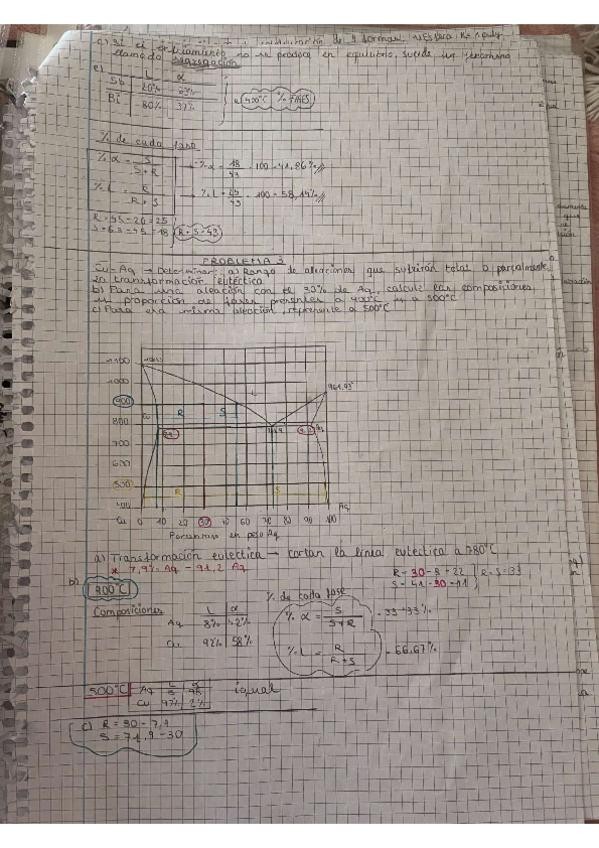 c) Si el enfriamiento no se produce en equilibrio, sucede un fenómeno
llamado segregación
e)
L α
Sb 20%
Bi 80% 37%
400°C % FASES
% de cada fase
% α = S / S+R → % α = 18/43 · 100 = 41,86%
% L = R / R+S → % L = 25/43 · 100 = 58,14%
R = 45-20 = 25
S = 63-45 = 18 R+S=43
PROBLEMA 3
Cu-Ag → Determinar: a) Rango de aleaciones que sufrirán total o parcialmente
la transformación eutéctica
b) Para una aleación con el 30% de Ag, calcule las composiciones
y proporción de fases presentes a 900°C y a 500°C
c) Para esa misma aleación, represente a 500°C
1100
1000
961,93°
900
L
Cu R S
800
700
600
500
R S
400
Ag
Cu 0 10 20 30 40 50 60 70 80 90 100
Porcentaje en peso Ag
a) Transformación eutéctica → cortan la línea eutéctica a 780°C
* 7,9% Ag - 91,2 Ag
R = 30-8 = 22
S = 41-30 = 11 R+S=33
b) 900°C
Composiciones
L α
Ag
Cu 92% 58%
% de cada fase
% α = S / S+R = 33,33%
% L = R / R+S = 66,67%
500°C
L α
Ag
Cu 97% 2%
igual
c) R = 30-7,9
S = 71,9-30